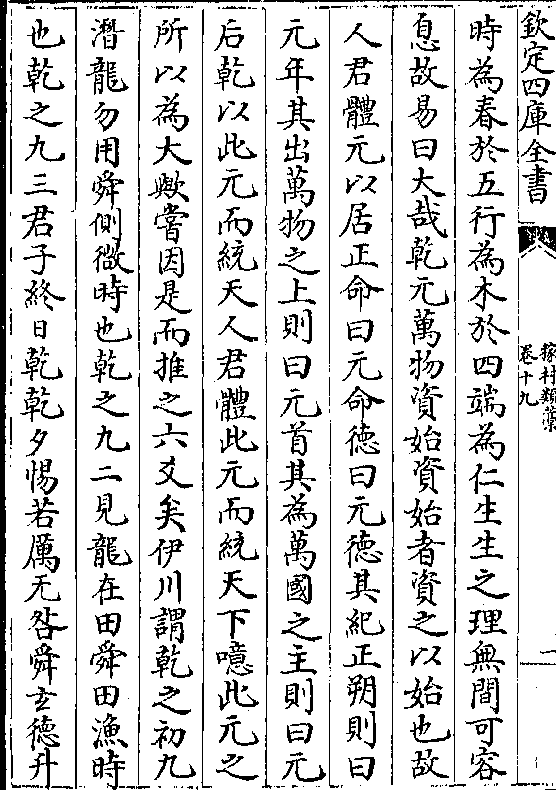 欽定四庫全書
稼村類藁
卷十九
一
時為春於五行為木於四端為仁生生之理無間可容
息故易曰大哉乾元萬物資始資始者資之以始也故
人君體元以居正命曰元命德曰元德其紀正朔則曰
元年其出萬物之上則曰元首其為萬國之主則曰元
后乾以此元而統天人君體此元而統天下噫此元之
所以為大歟嘗因是而推之六爻矣伊川謂乾之初九
潛龍勿用舜側微時也乾之九二見龍在田舜田漁時
也乾之九三君子終日乾乾夕惕若厲无咎舜玄德升